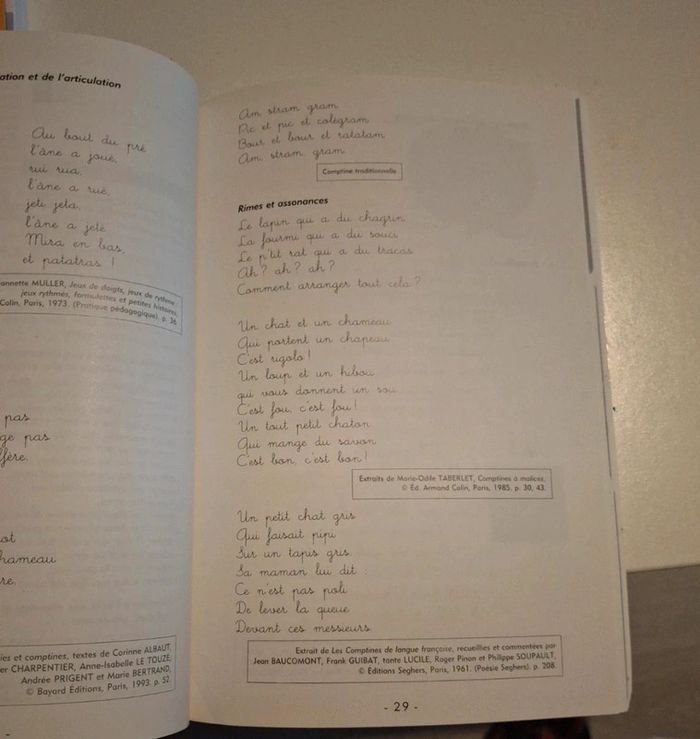 ation et de l'articulation
Au bout du pré
l'âne a joué,
rui rua,
l'âne a rué,
jeti jeta,
l'âne a jeté
Mira en bas,
et patatras !
annette MULLER, Jeux de doigts, jeux de rythme
jeux rythmés, formulettes et petites histoires,
Colin, Paris, 1973. (Pratique pédagogique). p. 36
pas
ge pas
ffère.
ot
hameau
re.
ies et comptines, textes de Corinne ALBAUT,
er CHARPENTIER, Anne-Isabelle LE TOUZÉ,
Andrée PRIGENT et Marie BERTRAND,
© Bayard Éditions, Paris, 1993. p. 52.
Am stram gram
Pic et pic et colégram
Bour et bour et ratatam
Am, stram, gram.
Comptine traditionnelle
Rimes et assonances
Le lapin qui a du chagrin
La fourmi qui a du souci
Le p'tit rat qui a du tracas
Ah ? ah ? ah ?
Comment arranger tout cela ?
Un chat et un chameau
Qui portent un chapeau
C'est rigolo !
Un loup et un hibou
qui vous donnent un sou
C'est fou, c'est fou !
Un tout petit chaton
Qui mange du savon
C'est bon, c'est bon !
Extraits de Marie-Odile TABERLET, Comptines à malices,
© Éd. Armand Colin, Paris, 1985. p. 30, 43.
Un petit chat gris
Qui faisait pipi
Sur un tapis gris.
Sa maman lui dit :
Ce n'est pas poli
De lever la queue
Devant ces messieurs.
Extrait de Les Comptines de langue française, recueillies et commentées par
Jean BAUCOMONT, Frank GUIBAT, tante LUCILE, Roger Pinon et Philippe SOUPAULT,
© Éditions Seghers, Paris, 1961. (Poésie Seghers). p. 208.
- 29 -